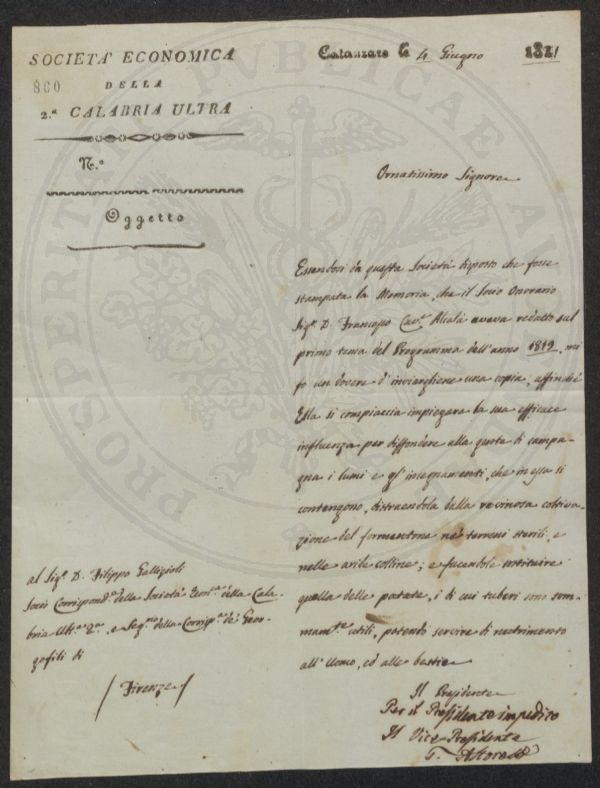 SOCIETA' ECONOMICA
860
DELLA
2.ª CALABRIA ULTRA
N.º
Oggetto
Catanzaro le 4 Giugno 1821
Ornatissimo Signore
Essendosi da questa Società disposto che fosse
stampata la Memoria, che il Socio Onorario
Sig.r D. Francesco Cav.r Alcalà aveva redatto sul
primo tema del Programma dell'anno 1819, mi
fo un dovere d'inviargliene una copia, affinché
Ella si compiaccia impiegare la sua efficace
influenza per diffondere alla gente di campa-
gna i lumi e gl'insegnamenti, che in essa si
contengono, distraendola dalla rovinosa coltiva-
zione del formentone ne' terreni sterili, e
nelle aride colline; e facendole sostituire
quella delle patate, i di cui tuberi sono som-
mam.te utili, potendo servire di nutrimento
all'Uomo, ed alle bestie
Il Presidente
Per il Presidente impedito
Il Vice Presidente
al Sig.r D. Filippo Gallizioli
Socio Corrispond.e della Società Econ.ca della Cala-
bria Ult.a 2.a, e Seg.rio della Corrisp.a de' Geor-
gofili di
/ Firenze /
PROSPERITATI PVBLICAE AV